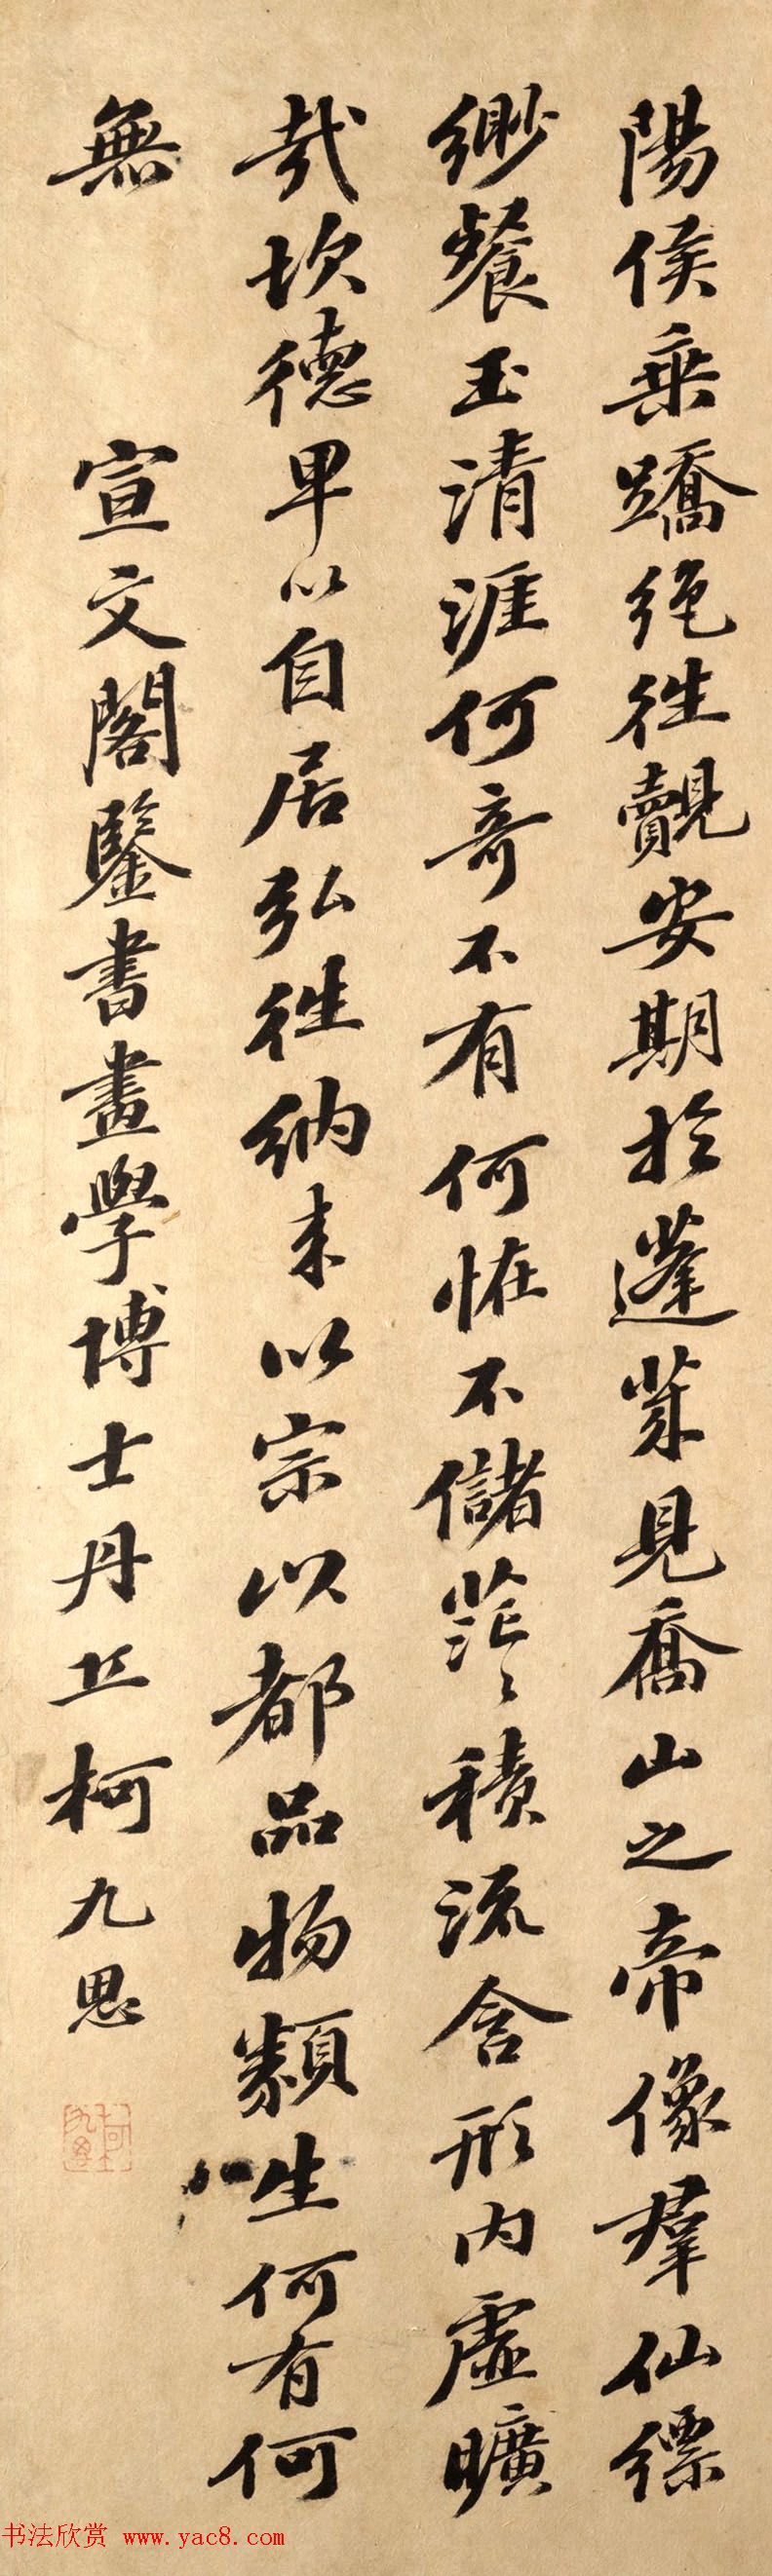 陽侯乗蹻绝徃覿安期於蓬莱見喬山之帝像羣仙縹
緲餐玉清涯何奇不有何恠不儲茫〻積流含形内虛曠
㦲坎德卑以自居弘徃納来以宗以都品物類生何有何
無　宣文閣鑒書畫學博士丹丘柯九思
柯九思
书法欣赏 www.yac8.com